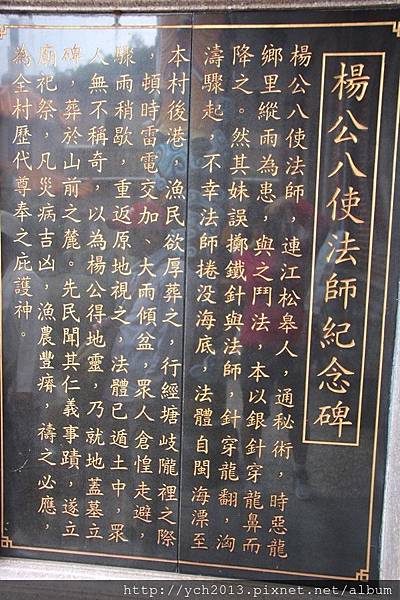 楊公八使法師紀念碑
楊公八使法師，連江松皋人，通秘術，時惡龍
鄉里縱雨為患，與之鬥法，本以銀針穿龍鼻而
降之。然其妹誤擲鐵針與法師，針穿龍翻，洶
濤驟起，不幸法師捲没海底，法體自閩海漂至
本村後港，漁民欲厚葬之，行經塘岐隴裡之際
，頓時雷電交加、大雨傾盆，眾人倉惶走避，
驟雨稍歇，重返原地視之，法體已遁土中，眾
人無不稱奇，以為楊公得地靈，乃就地蓋墓立
碑，葬於山前之麓。先民聞其仁義事蹟，遂立
廟祀祭，凡災病吉凶，漁農豐瘠，禱之必應，
為全村歷代尊奉之庇護神。
http://ych2013.pixnet.net/album